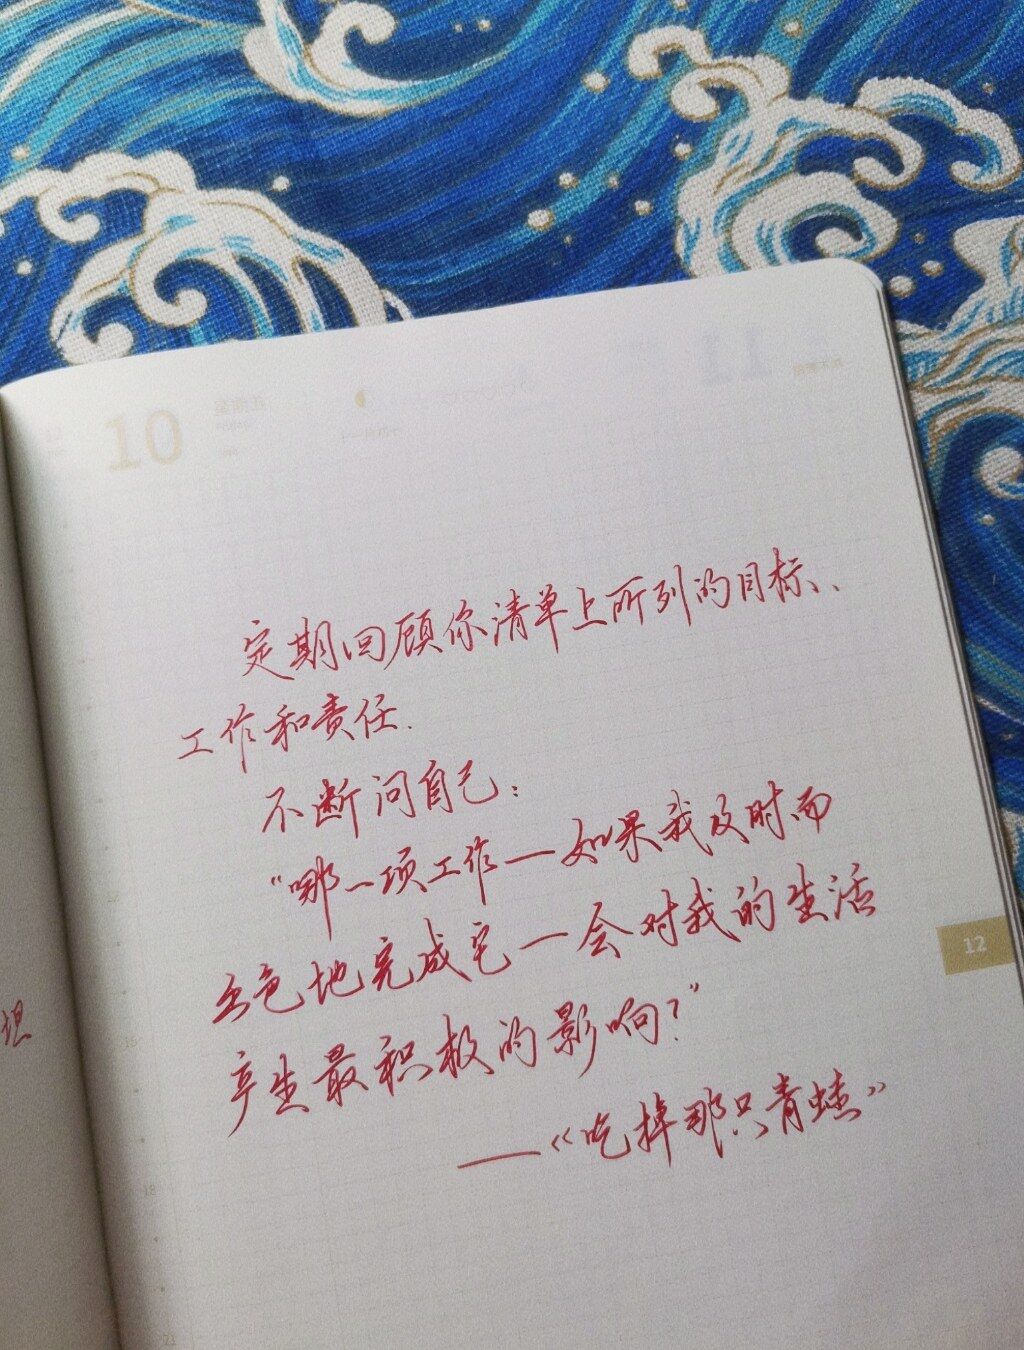 10 星期五
11
定期回顾你清单上所列的目标、
工作和责任.
不断问自己:
“哪一项工作—如果我及时而
出色地完成它—会对我的生活
产生最积极的影响?”
——《吃掉那只青蛙》
12
坦
15
18
21